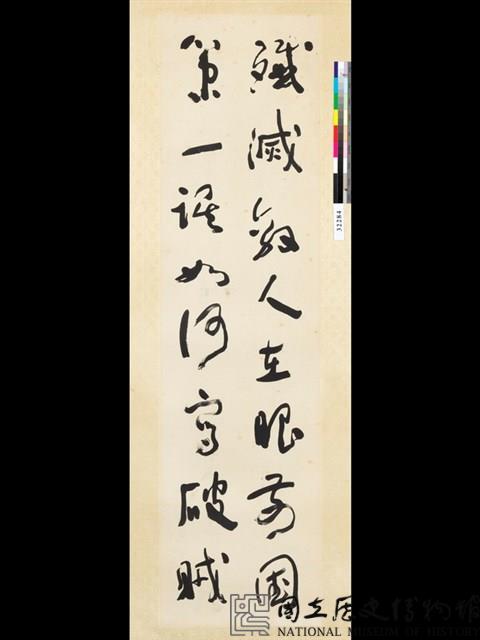 殲滅敵人在眼前國
策一誤如何寫破賊
國立歷史博物館
NATIONAL MUSEUM OF HISTORY